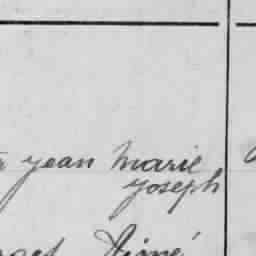 jean Marie
Joseph
Aimé